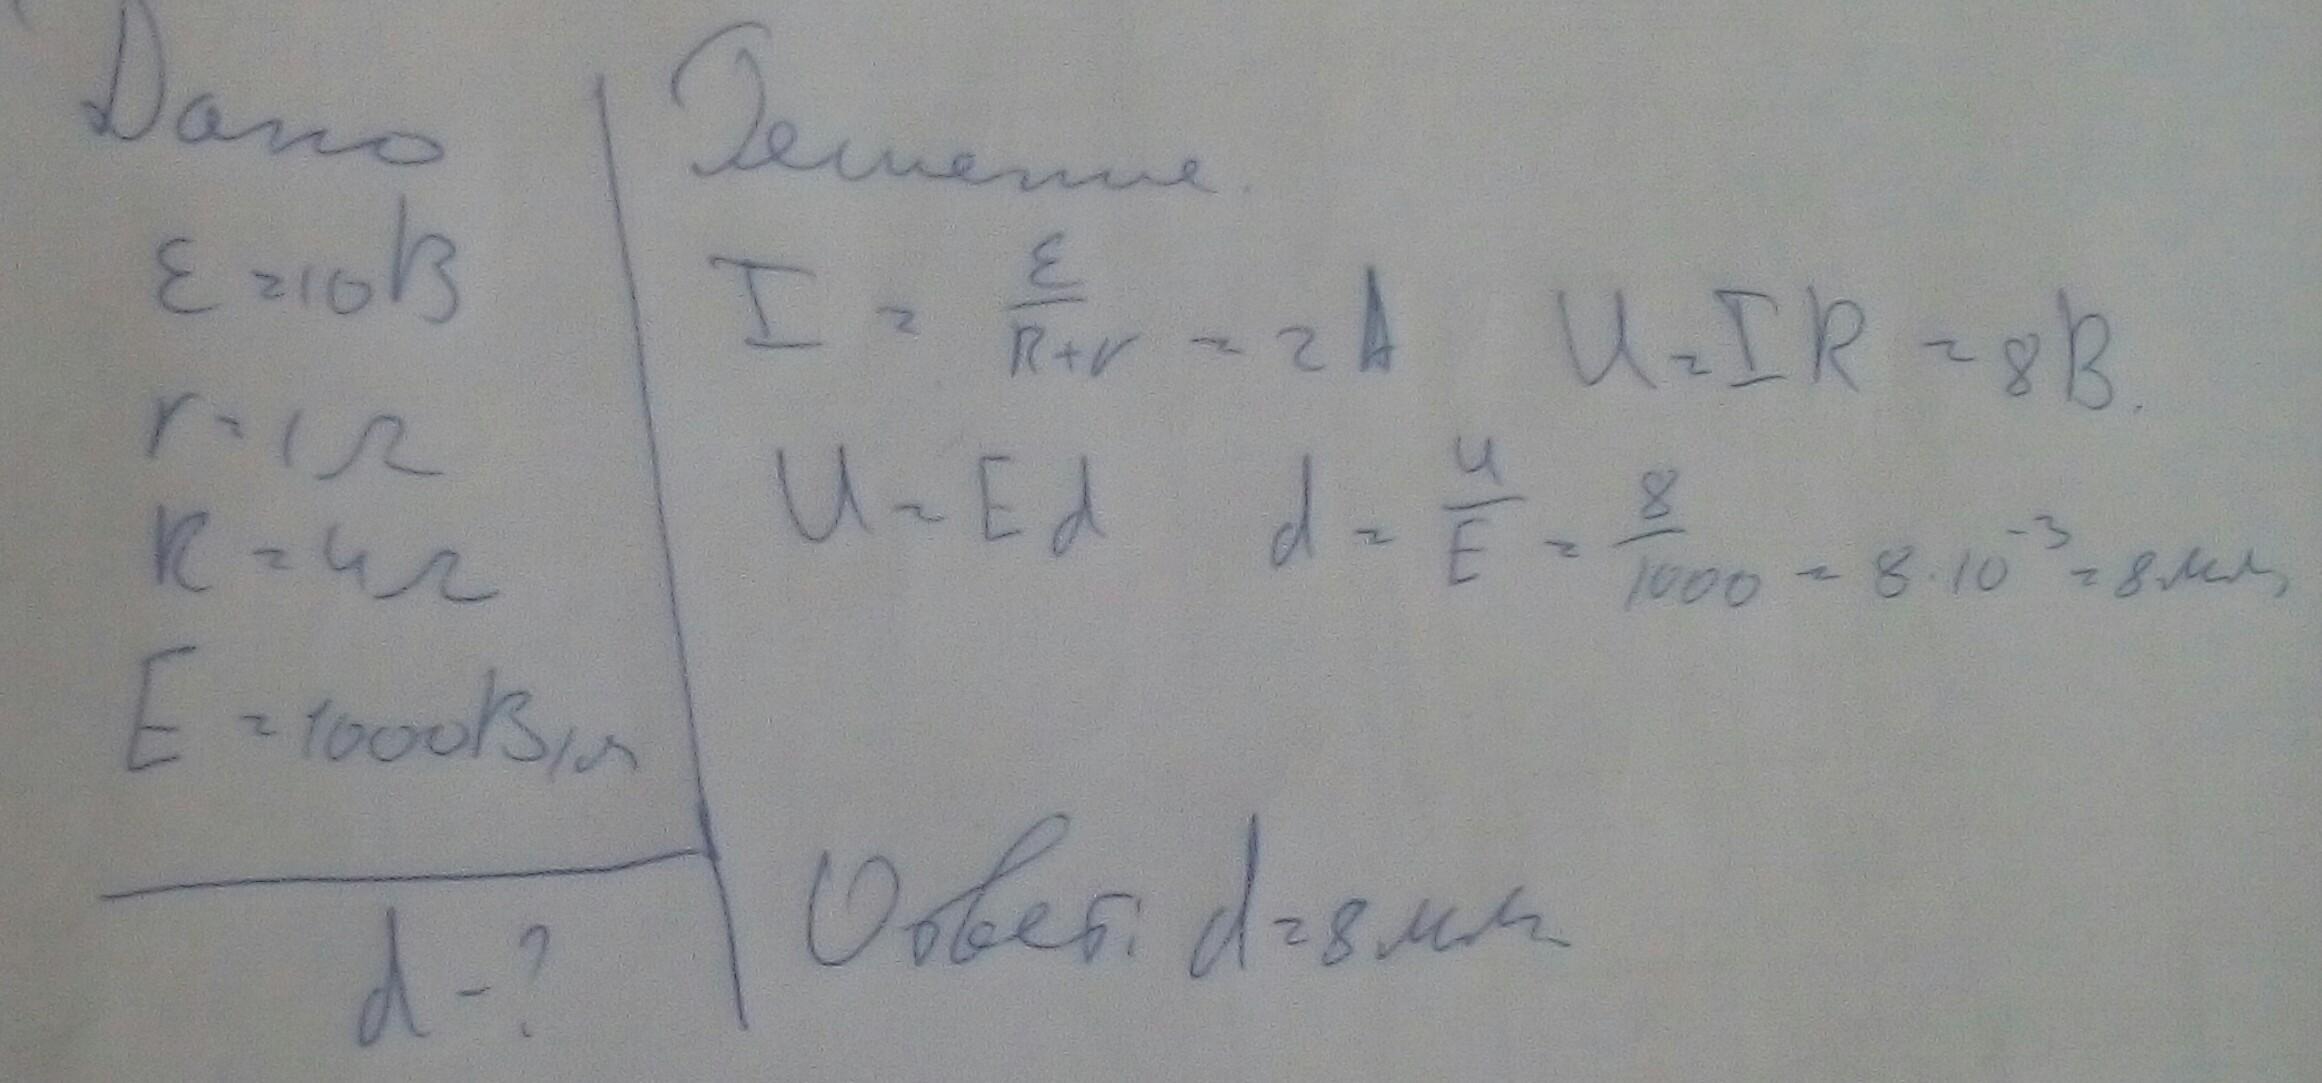 Дано
ε=10В
r=1Ω
R=4Ω
E=1000В/м
d-?
Решение.
I = ε/(R+r) = 2А U=IR=8В.
U=Ed d=U/E=8/1000=8·10⁻³=8мм
Ответ: d=8мм